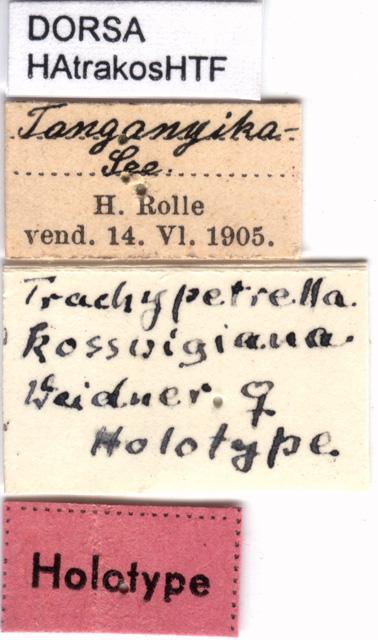 DORSA
HAtrakosHTF
Tanganyika-
See.
H. Rolle
vend. 14. VI. 1905.
Trachypetrella.
Kosswigiana.
Weidner. ♀
Holotype.
Holotype